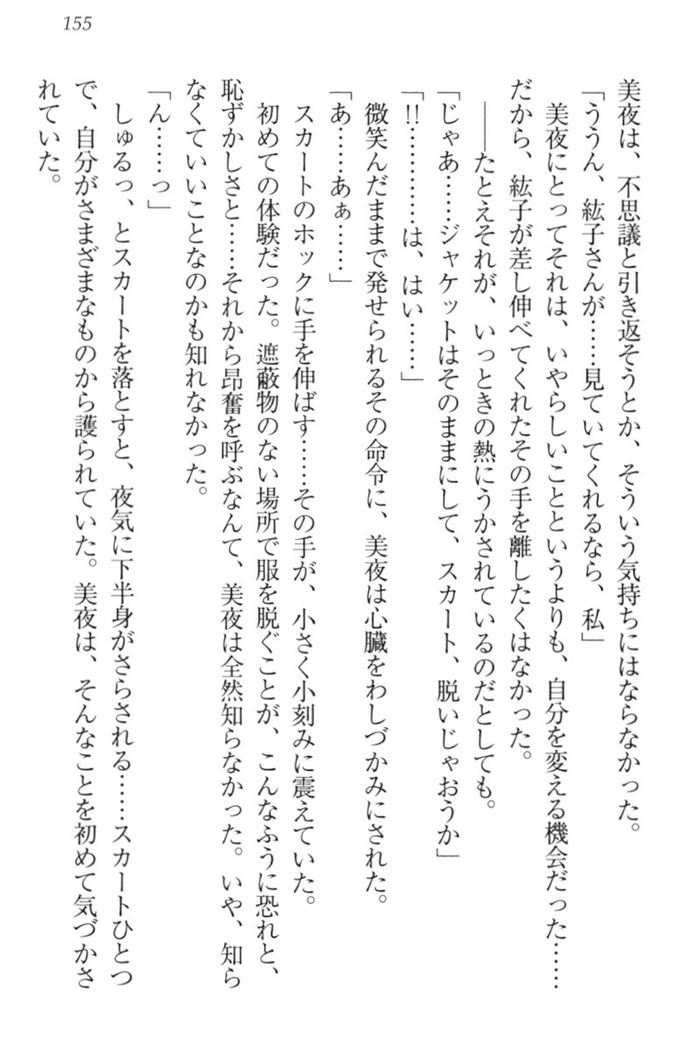 155
美夜は、不思議と引き返そうとか、そういう気持ちにはならなかった。
「ううん、紘子さんが……見ていてくれるなら、私」
美夜にとってそれは、いやらしいことというよりも、自分を変える機会だった……
だから、紘子が差し伸べてくれたその手を離したくはなかった。
――たとえそれが、いっときの熱にうかされているのだとしても。
「じゃあ……ジャケットはそのままにして、スカート、脱いじゃおうか」
「!!…………は、はい……」
微笑んだままで発せられるその命令に、美夜は心臓をわしづかみにされた。
「あ……あぁ……」
スカートのホックに手を伸ばす……その手が、小さく小刻みに震えていた。
初めての体験だった。遮蔽物のない場所で服を脱ぐことが、こんなふうに恐れと、
恥ずかしさと……それから昂奮を呼ぶなんて、美夜は全然知らなかった。いや、知ら
なくていいことなのかも知れなかった。
「ん……っ」
しゅるっ、とスカートを落とすと、夜気に下半身がさらされる……スカートひとつ
で、自分がさまざまなものから護られていた。美夜は、そんなことを初めて気づかさ
れていた。